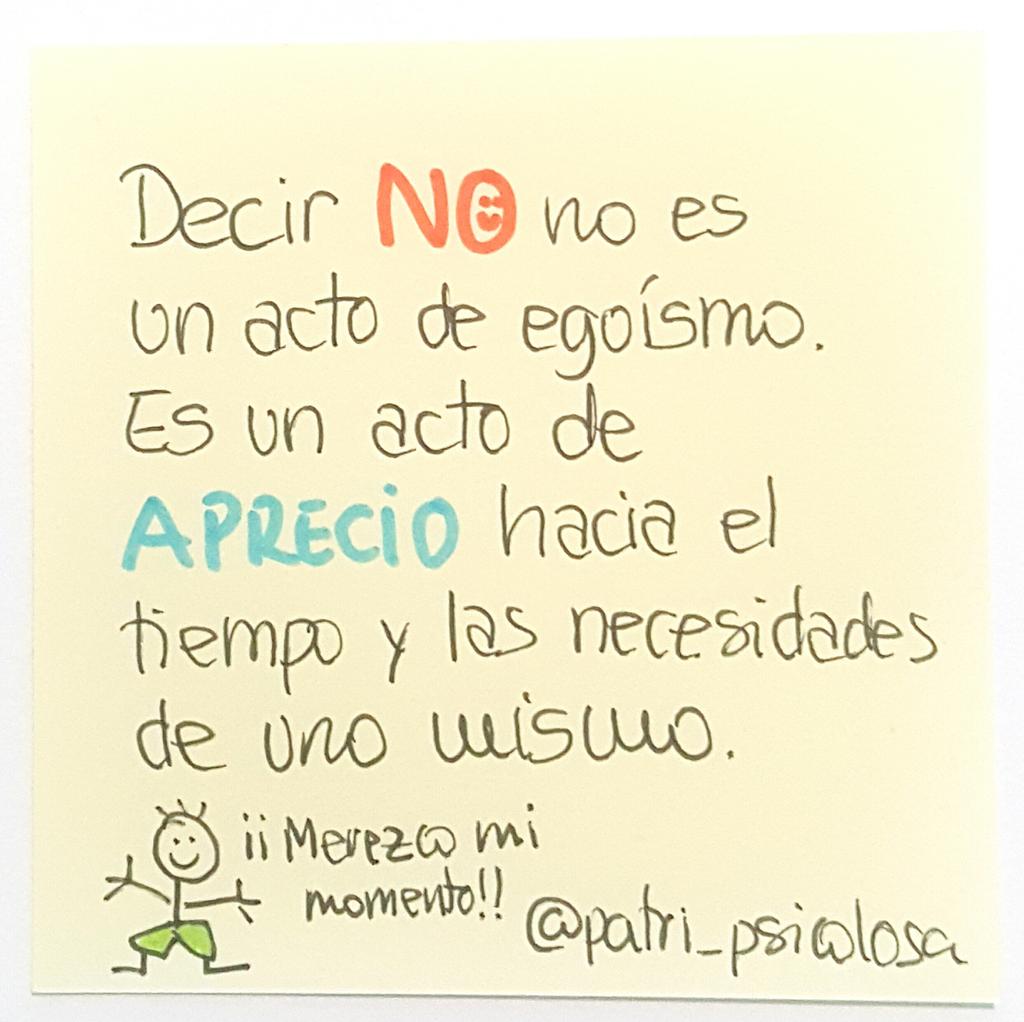 Decir NO no es
un acto de egoísmo.
Es un acto de
APRECiO hacia el
tiempo y las necesidades
de uno mismo.
¡¡Merezco mi
momento!!
@patri_psicolosa